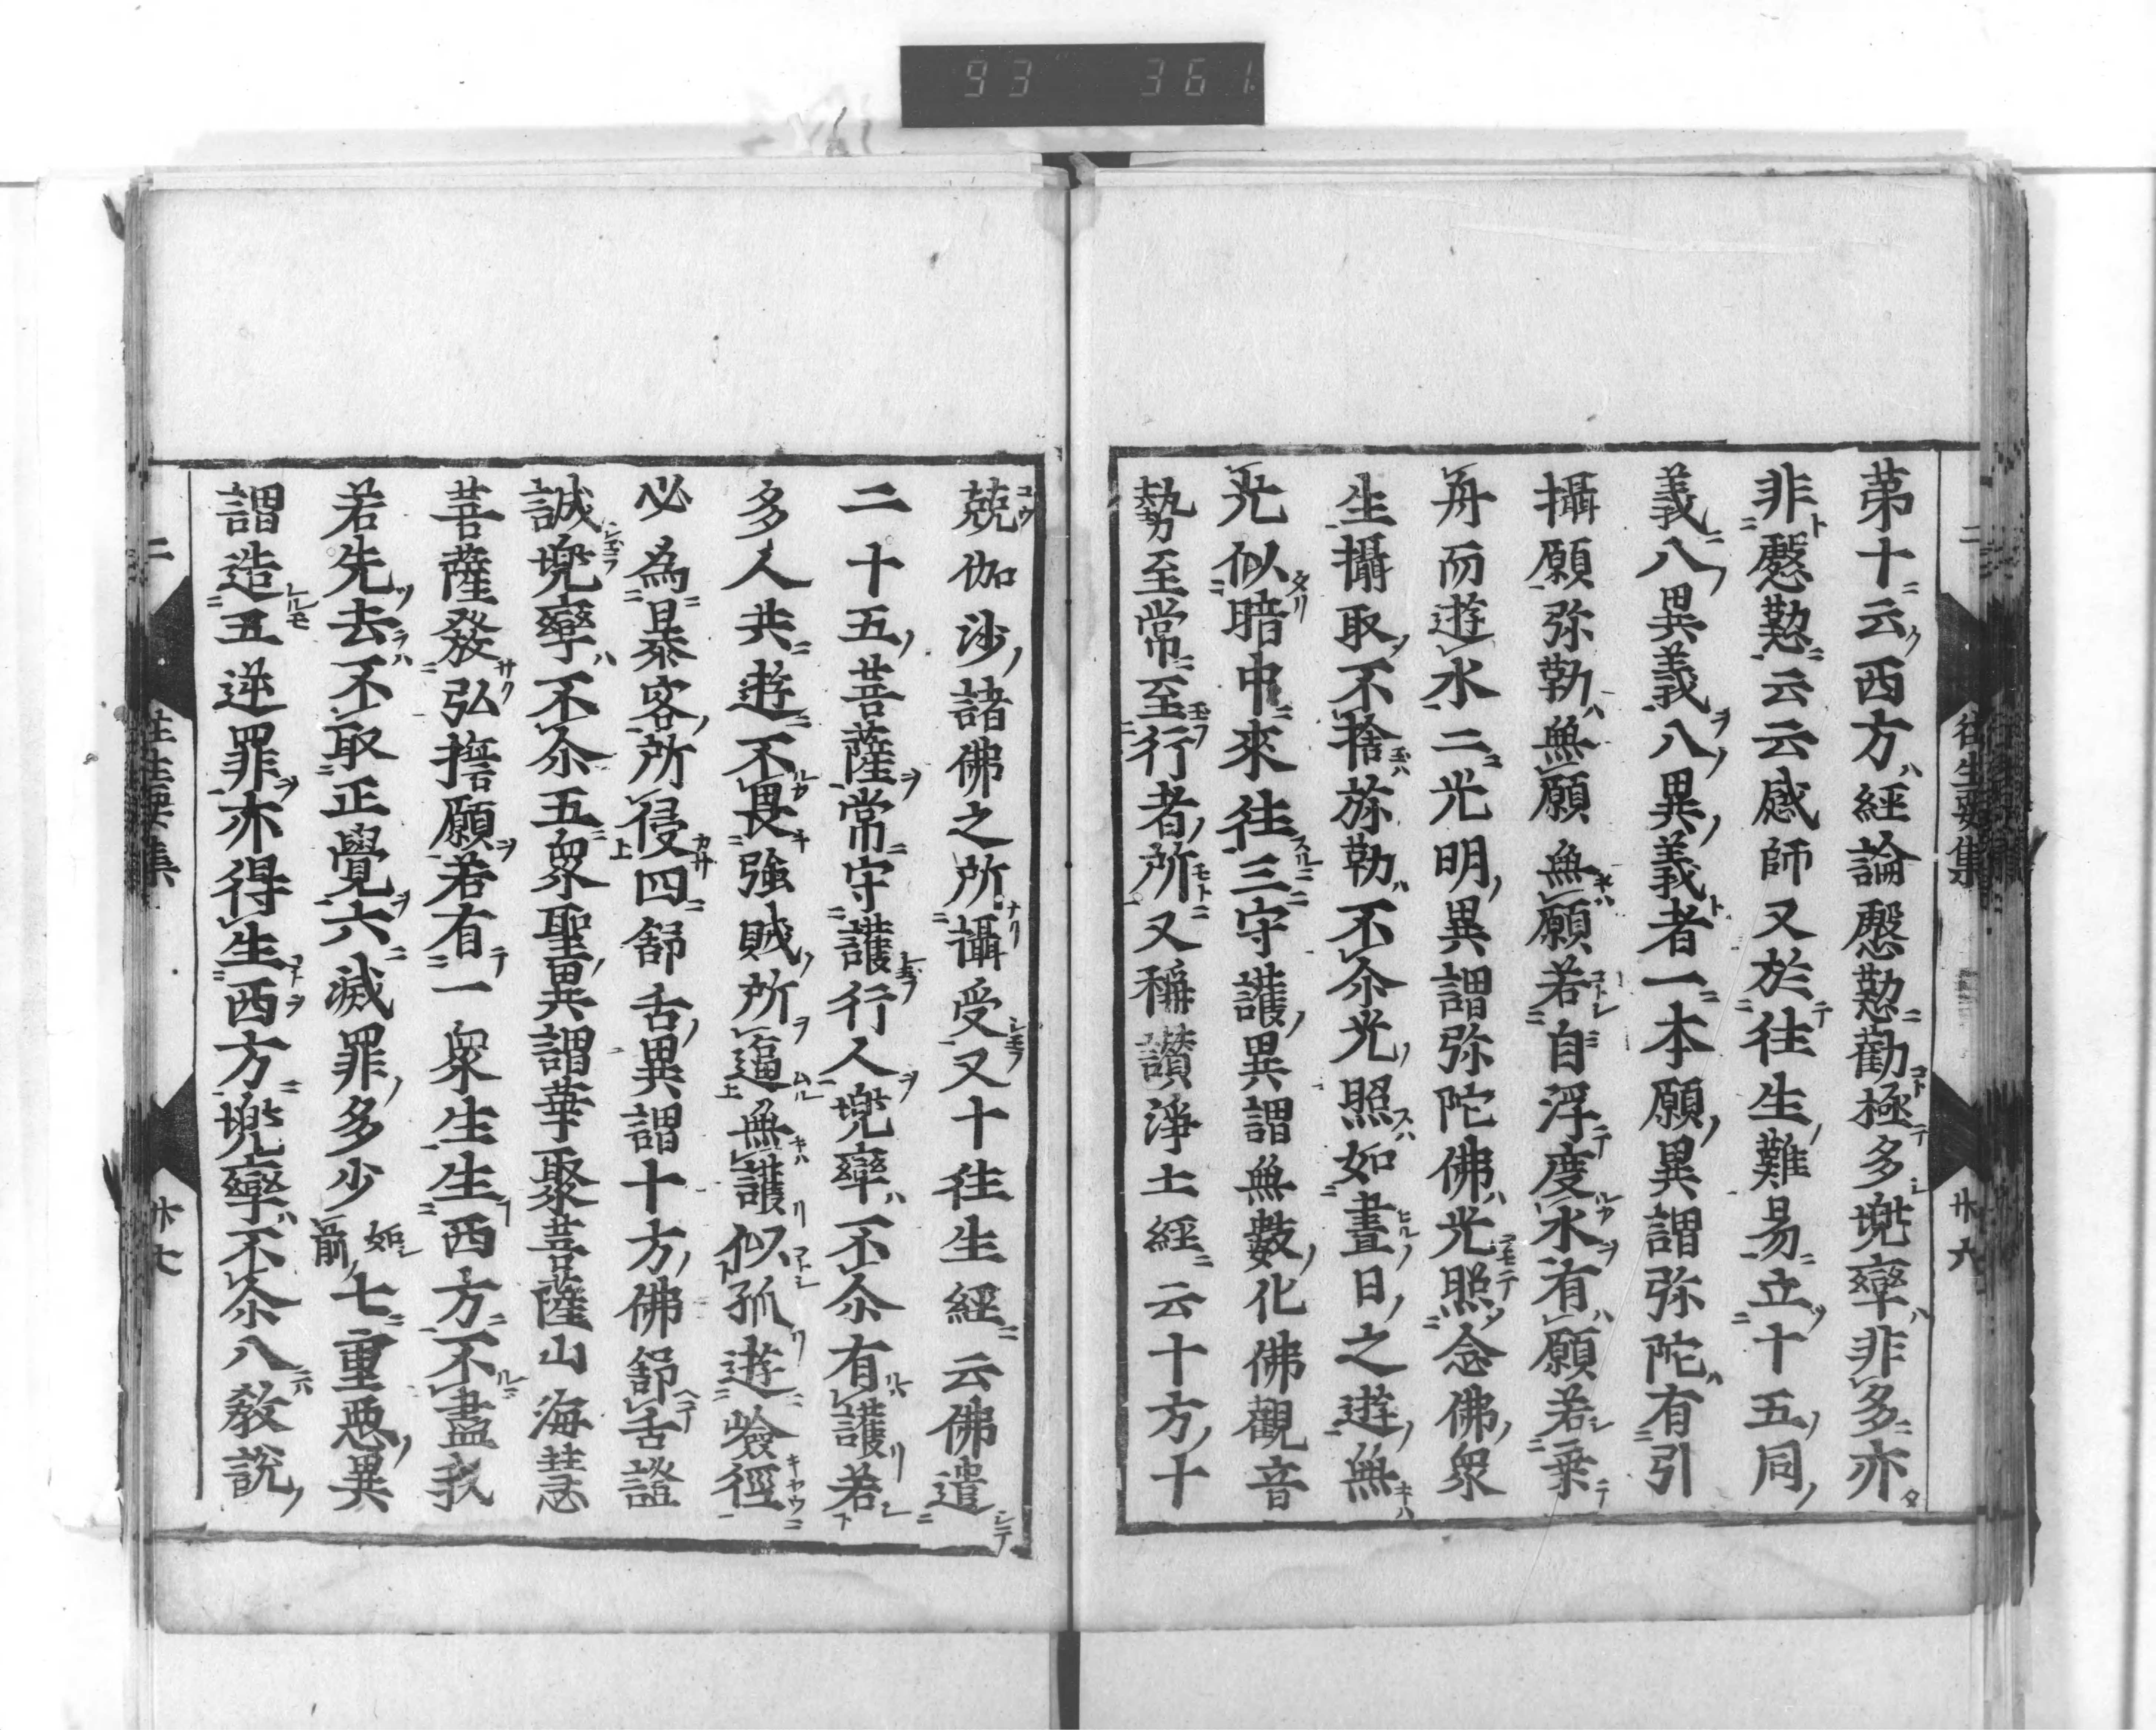 93 361
二 往生要集 卅六
第十云西方經論慇懃勸極多兜率非多亦
非慇懃云云感師又於往生難易立十五同
義八異義八異義者一本願異謂弥陀有引
攝願弥勒無願無願若自浮度水有願若乗
舟而遊水二光明異謂弥陀佛光照念佛衆
生攝取不捨弥勒不尒光照如晝日之遊無
光似暗中來往三守護異謂無數化佛觀音
勢至常至行者所又稱讃淨土經云十方十
兢伽沙諸佛之所攝受又十往生經云佛遣
二十五菩薩常守護行人兜率不尒有護若
多人共遊不畏強賊所逼無護似孤遊嶮徑
必為暴客所侵四舒舌異謂十方佛舒舌證
誠兜率不尒五衆聖異謂華聚菩薩山海慧
菩薩發弘誓願若有一衆生生西方不盡我
若先去不取正覺六滅罪多少如前七重悪異
謂造五逆罪亦得生西方兜率不尒八教説
二 往生要集 卅七